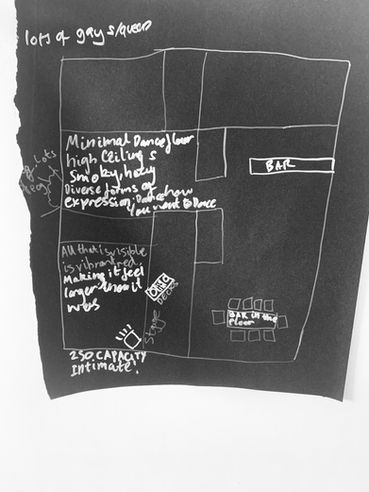 lots of gays/queers
Minimal Dancefloor
high Ceilings
smoky, hazy
Diverse forms of
expression. Dance how
you want to Dance
BAR
lots
All that is visible
is vibrant red.
Making it feel
larger than it
was
DECKS
Stage
BAR in the
floor
250 CAPACITY
Intimate!